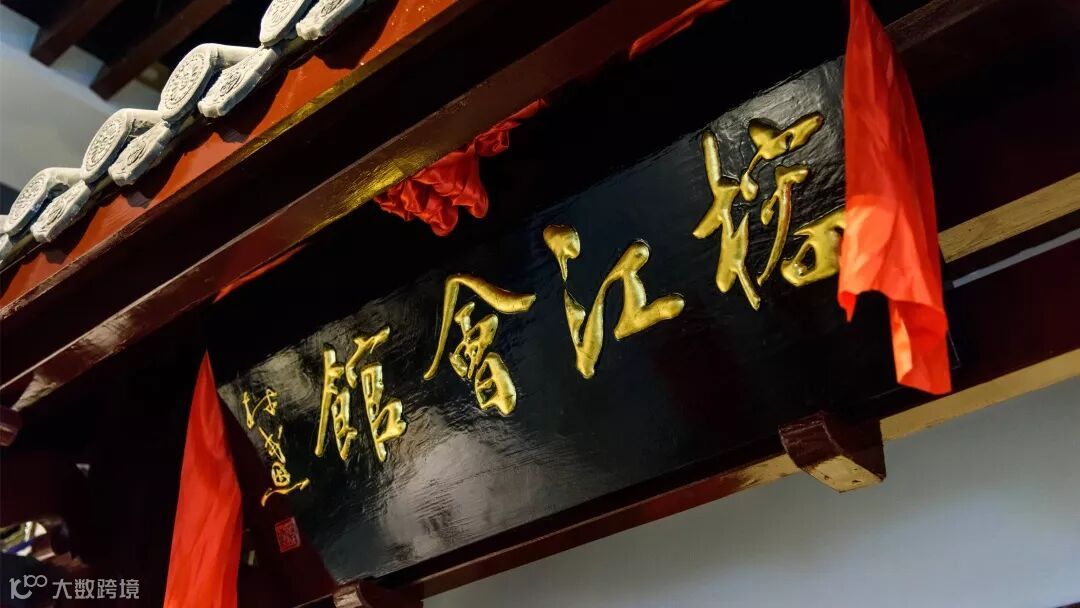 榕江會館
大数跨境